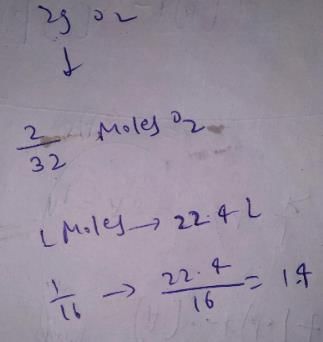 2g O2
↓
2/32 Moles O2
1 Moles → 22.4 L
1/16 → 22.4/16 = 1.4